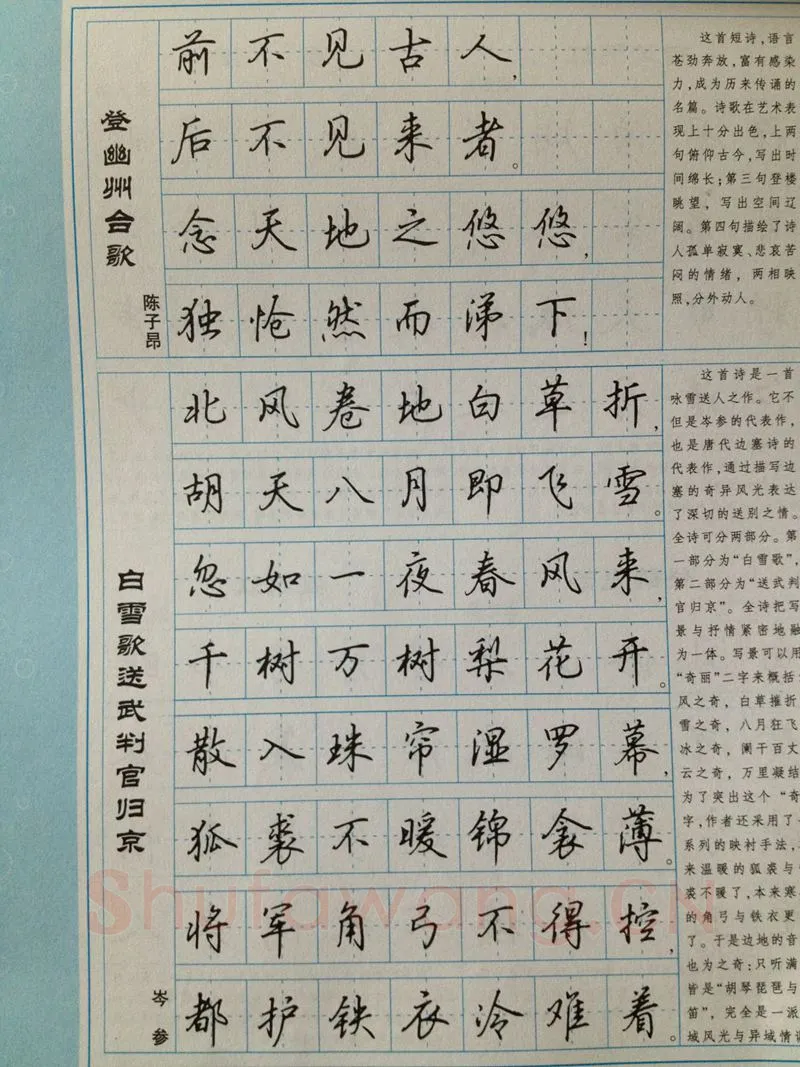 登幽州台歌
陈子昂
前不见古人,
后不见来者。
念天地之悠悠,
独怆然而涕下!
这首短诗,语言
苍劲奔放,富有感染
力,成为历来传诵的
名篇。诗歌在艺术表
现上十分出色,上两
句俯仰古今,写出时
间绵长;第三句登楼
眺望,写出空间辽
阔。第四句描绘了诗
人孤单寂寞、悲哀苦
闷的情绪,两相映
照,分外动人。
白雪歌送武判官归京
岑参
北风卷地白草折,
胡天八月即飞雪。
忽如一夜春风来,
千树万树梨花开。
散入珠帘湿罗幕,
狐裘不暖锦衾薄。
将军角弓不得控,
都护铁衣冷难着。
这首诗是一首
咏雪送人之作。它不
但是岑参的代表作,
也是唐代边塞诗的
代表作,通过描写边
塞的奇异风光表达
了深切的送别之情。
全诗可分两部分。第
一部分为“白雪歌”,
第二部分为“送武判
官归京”。全诗把写
景与抒情紧密地融
为一体。写景可以用
“奇丽”二字来概括
风之奇,白草摧折
雪之奇,八月狂飞
冰之奇,阑干百丈
云之奇,万里凝结
为了突出这个“奇
字,作者还采用了
系列的映衬手法,
来温暖的狐裘与
裘不暖了,本来寒
的角弓与铁衣更
了。于是边地的音
也为之奇:只听满
皆是“胡琴琵琶与
笛”,完全是一派
域风光与异域情调
Shufawang.CN